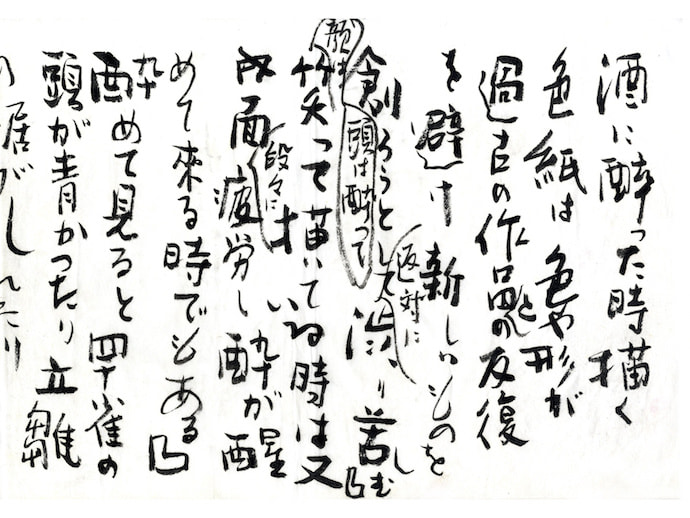 酒に酔った時描く
色紙は色や形が
過去の作品の反復
と
を避け新しいものを
返対に
創ろうとして渋り苦しむ
頭は酔って
顔は
笑って描いている時は又
段々に
反面疲労し酔が醒
めて來る時でもある
酔
醒めて見ると四十雀の
頭が青かったり立雛
の裾がしれたり